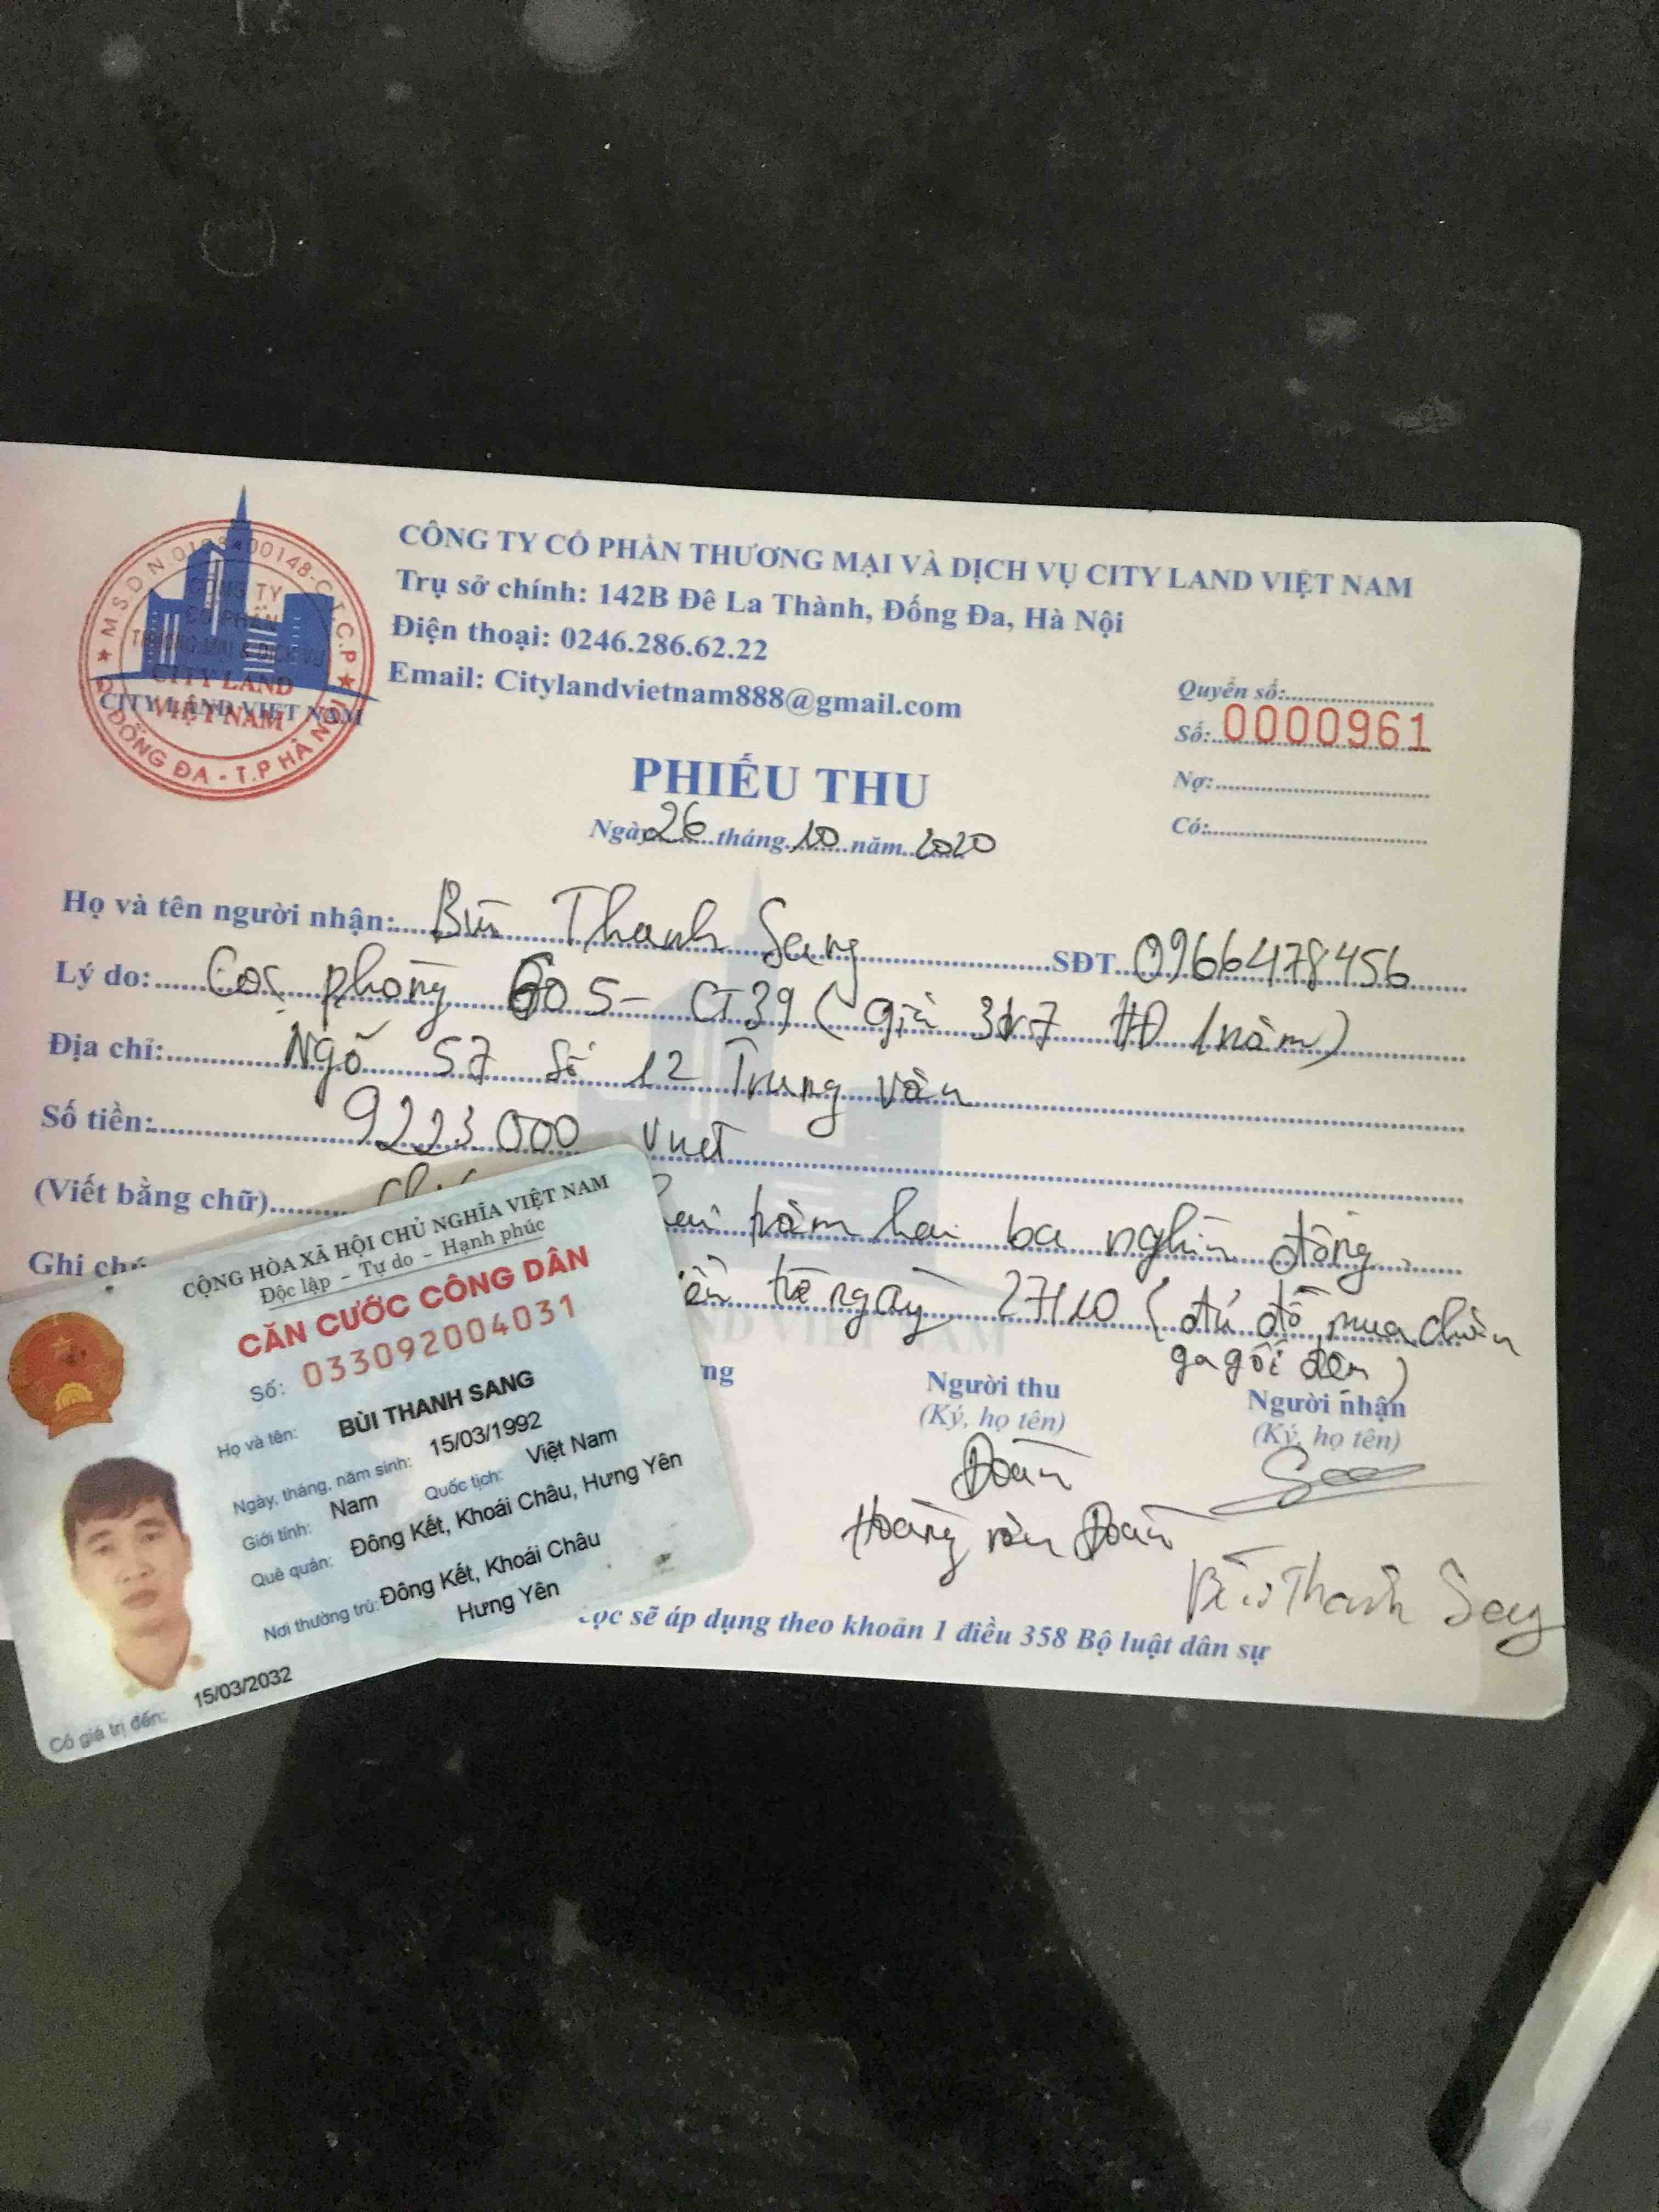 CÔNG TY CỔ PHẦN THƯƠNG MẠI VÀ DỊCH VỤ CITY LAND VIỆT NAM
Trụ sở chính: 142B Đê La Thành, Đống Đa, Hà Nội
Điện thoại: 0246.286.62.22
Email: Citylandvietnam888@gmail.com
CÔNG TY
CỔ PHẦN
THƯƠNG MẠI & DỊCH VỤ
CITY LAND
VIỆT NAM
CITY LAND VIET NAM
ĐỐNG ĐA - T.P HÀ NỘI
Quyển số:
Số: 0000961
Nợ:
Có:
PHIẾU THU
Ngày 26 tháng 10 năm 2020
Họ và tên người nhận: Bùi Thanh Sang SĐT 0966478456
Lý do: Cọc phòng 605 - CT39 ( giá 3tr7 HĐ 1 năm )
Địa chỉ: Ngõ 57 Số 12 Trung Văn
Số tiền: 9223 000 vnđ
(Viết bằng chữ) hai trăm hai ba nghìn đồng
Ghi chú từ ngày 27/10 ( đủ đồ, mua chăn
ga gối đệm )
Người thu
(Ký, họ tên)
Đoàn
Hoàng Văn Đoàn
Người nhận
(Ký, họ tên)
Bùi Thanh Sang
cọc sẽ áp dụng theo khoản 1 điều 358 Bộ luật dân sự
CỘNG HÒA XÃ HỘI CHỦ NGHĨA VIỆT NAM
Độc lập - Tự do - Hạnh phúc
CĂN CƯỚC CÔNG DÂN
Số: 033092004031
Họ và tên: BÙI THANH SANG
Ngày, tháng, năm sinh: 15/03/1992
Giới tính: Nam Quốc tịch: Việt Nam
Quê quán: Đông Kết, Khoái Châu, Hưng Yên
Nơi thường trú: Đông Kết, Khoái Châu
Hưng Yên
Có giá trị đến: 15/03/2032